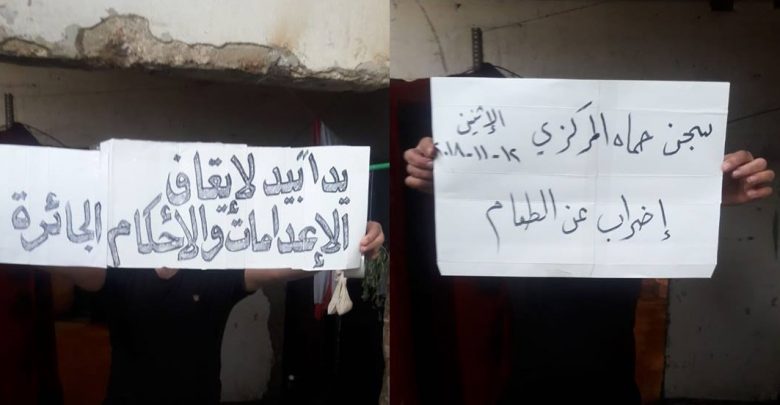 يداً بيد لإيقاف
الإعدامات والأحكام الجائرة
سجن حماه المركزي الإثنين
١٢-١١-٢٠١٨
إضراب عن الطعام